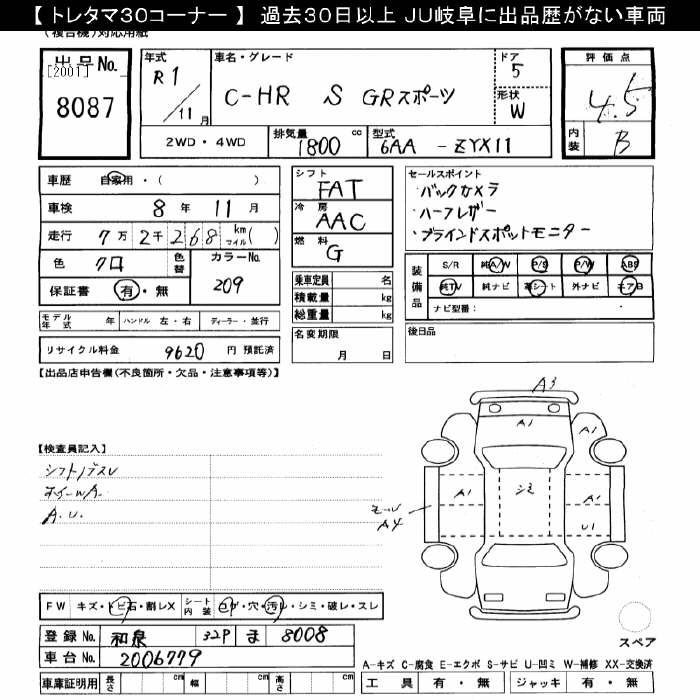 【 トレタマ30コーナー 】 過去30日以上 JU岐阜に出品歴がない車両
(複合機)対応用紙
出品No.
[2001]
8087
年式
R1
/11月
車名・グレード
C-HR S GRスポーツ
ドア
5
形状
W
評価点
4.5
内装
B
2WD・4WD
排気量
1800
cc
型式
6AA - ZYX11
車歴 自家用・( )
車検 8年 11月
走行 7万 2千 268 km マイル ( )
色 クロ
色替
カラーNo.
209
保証書 有・無
シフト
FAT
冷房
AAC
燃料
G
乗車定員 名
積載量 kg
総重量 kg
セールスポイント
・バックカメラ
・ハーフレザー
・ブラインドスポットモニター
装備品
S/R 純A/W P/S P/W ABS
純TV 純ナビ 革シート 外ナビ エアB
ナビ型番:
モデル年式 年 ハンドル 左・右 ディーラー・並行
名変期限
月 日
後日品
リサイクル料金 9620 円 預託済
【出品店申告欄(不良箇所・欠品・注意事項等)】
【検査員記入】
A3
A1
A1
A1
シミ
A1
U1
モール
A4
シフトノブスレ
ホイールA.
A.U.
スペア
FW キズ・トビ石・割レX シート内装 コゲ・穴・汚レ・シミ・破レ・スレ
登録No. 和泉 32P ま 8008
車台No. 2006779
A-キズ C-腐食 E-エクボ S-サビ U-凹ミ W-補修 XX-交換済
車庫証明用 長さ cm 幅 cm 高さ cm
工具 有・無 ジャッキ 有・無